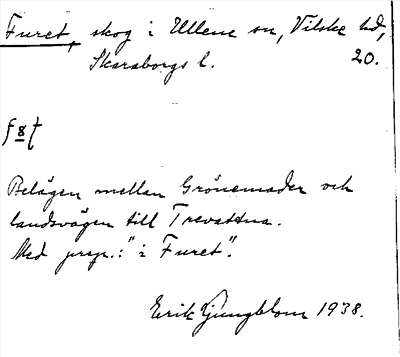 Furet, skog i Ullene sn, Vilske hd,
Skaraborgs l. 20.
Belägen mellan Grönemader och
landsvägen till Trevattna.
Med prep.: "i Furet".
Erik Ljungblom 1938.